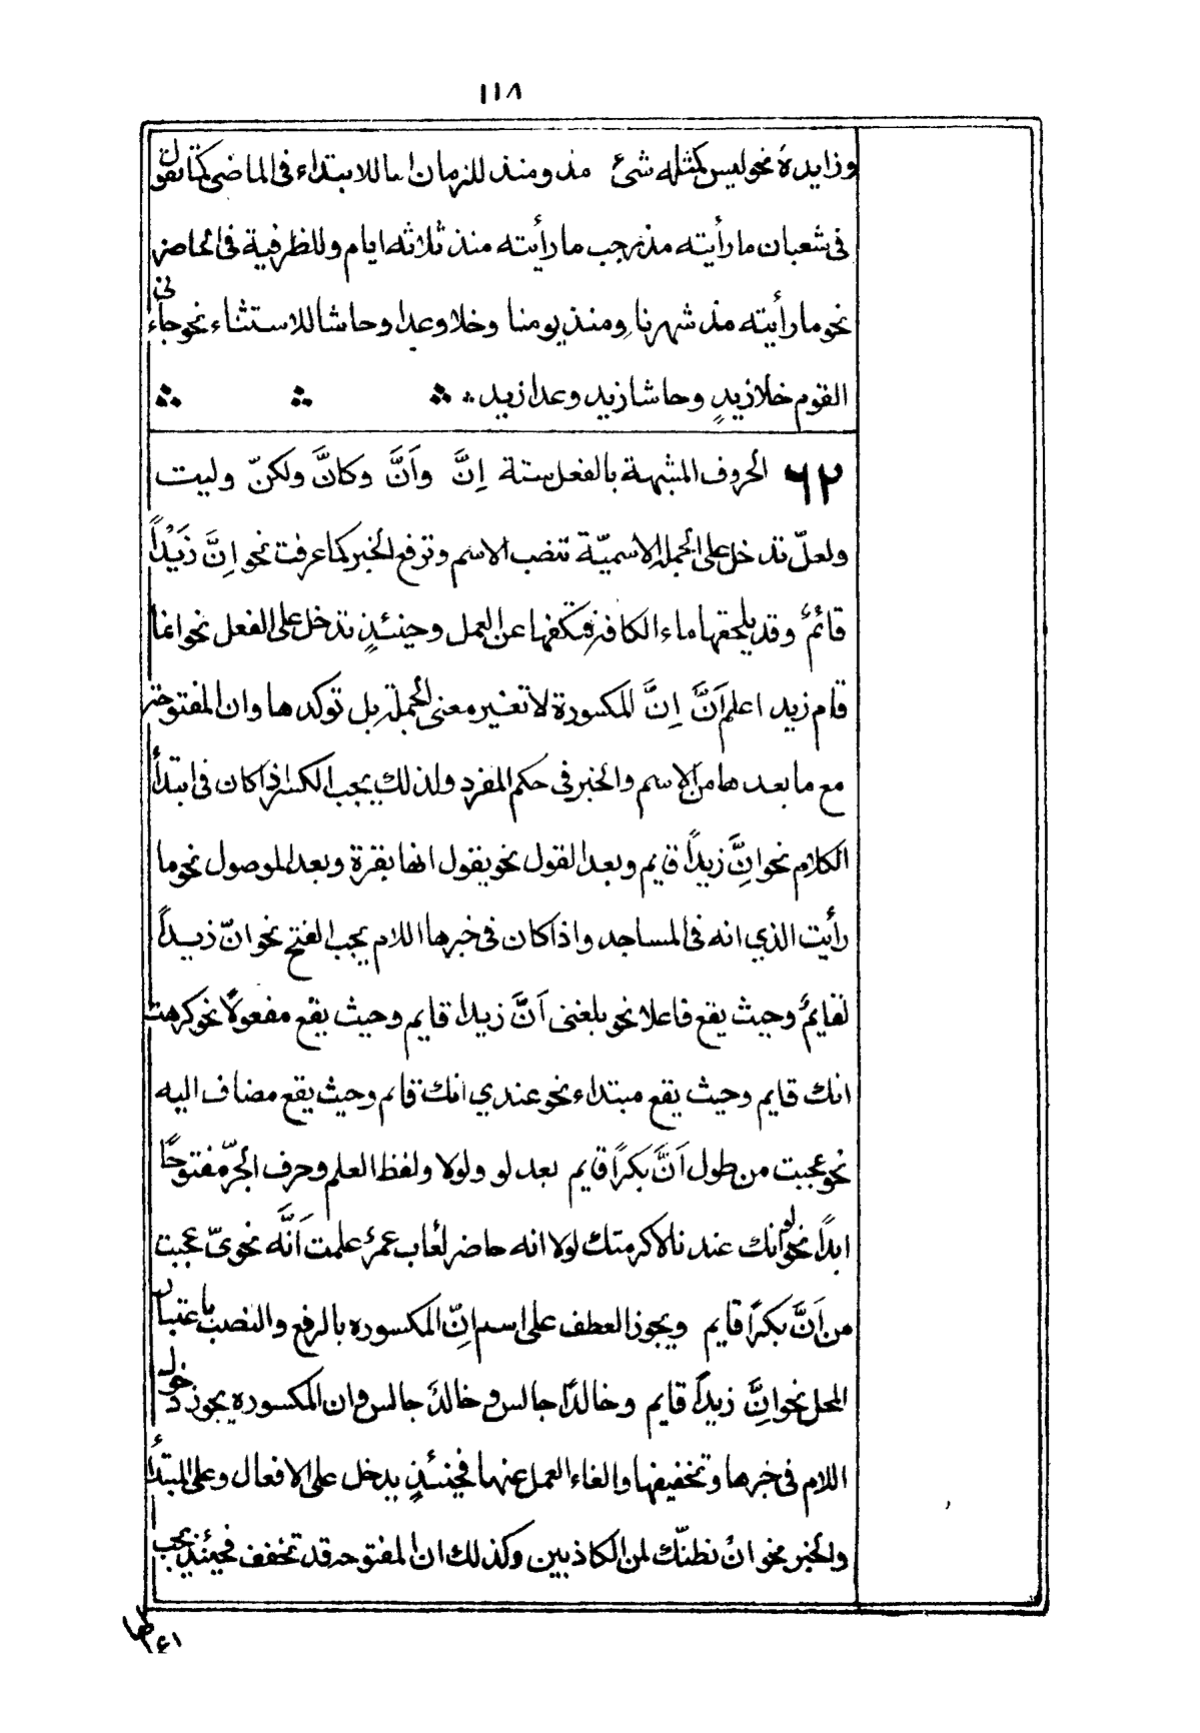 ١١٨
وزايدة نحو ليس كمثله شئ مذ ومنذ للزمان اما للابتداء فى الماضى كما تقول
فى شعبان ما رأيته مذ رجب ما رأيته منذ ثلاثه ايام وللظرفية فى الحاضر
نحو ما رأيته مذ شهرنا ومنذ يومنا وخلا وعدا وحاشا للاستثناء نحو جاءنى
القوم خلا زيدٍ وحاشا زيد وعدا زيد
٦٢ الحروف المشبهة بالفعل ستة اِنَّ واَنَّ وكانَّ ولكنّ وليت
ولعلّ تدخل على الجملة الاسميّة تنصب الاسم وترفع الخبر كما عرفت نحو اِنَّ زَيْداً
قائمٌ وقد يلحقها ماء الكافة فتكفها عن العمل وحينئذٍ تدخل على الفعل نحو انما
قام زيد اعلم اَنَّ اِنَّ المكسورة لا تغير معنى الجملة بل توكدها وان المفتوحة
مع ما بعدها من الاسم والخبر فى حكم المفرد ولذلك يجب الكسر اذا كان فى ابتدأ
الكلام نحو انَِّ زيداً قايم وبعد القول نحو يقول انها بقرة وبعد الموصول نحو ما
رأيت الذي انه فى المساجد واذا كان فى خبرها اللام يجب الفتح نحو انّ زيداً
لقايمٌ وحيث يقع فاعلا نحو بلغنى اَنَّ زيدا قايم وحيث يقع مفعولاً نحو كرهت
انك قايم وحيث يقع مبتداء نحو عندي انك قايم وحيث يقع مضاف اليه
نحو عجبت من طول اَنَّ بكراً قايم بعد لو ولولا ولفظ العلم وحرف الجرّ مفتوحاً
ابداً نحو لو انك عندنا لاكرمتك لولا انه حاضر لغاب عمرٌ علمت اَنَّه نحوىّ عجبت
من اَنَّ بكراً قايم ويجوز العطف على اسم اِنّ المكسوره بالرفع والنصب باعتبار
المحل نحو انَِّ زيداً قايم وخالداً جالس وخالدٌ جالس وان المكسوره يجوز دخول
اللام فى خبرها وتخفيفها والغاء العمل عنها فحينئذٍ يدخل على الافعال وعلى المبتدأ
والخبر نحو انْ نظنّك لمن الكاذبين وكذلك ان المفتوحه قد تخفف فحينئذ يجب